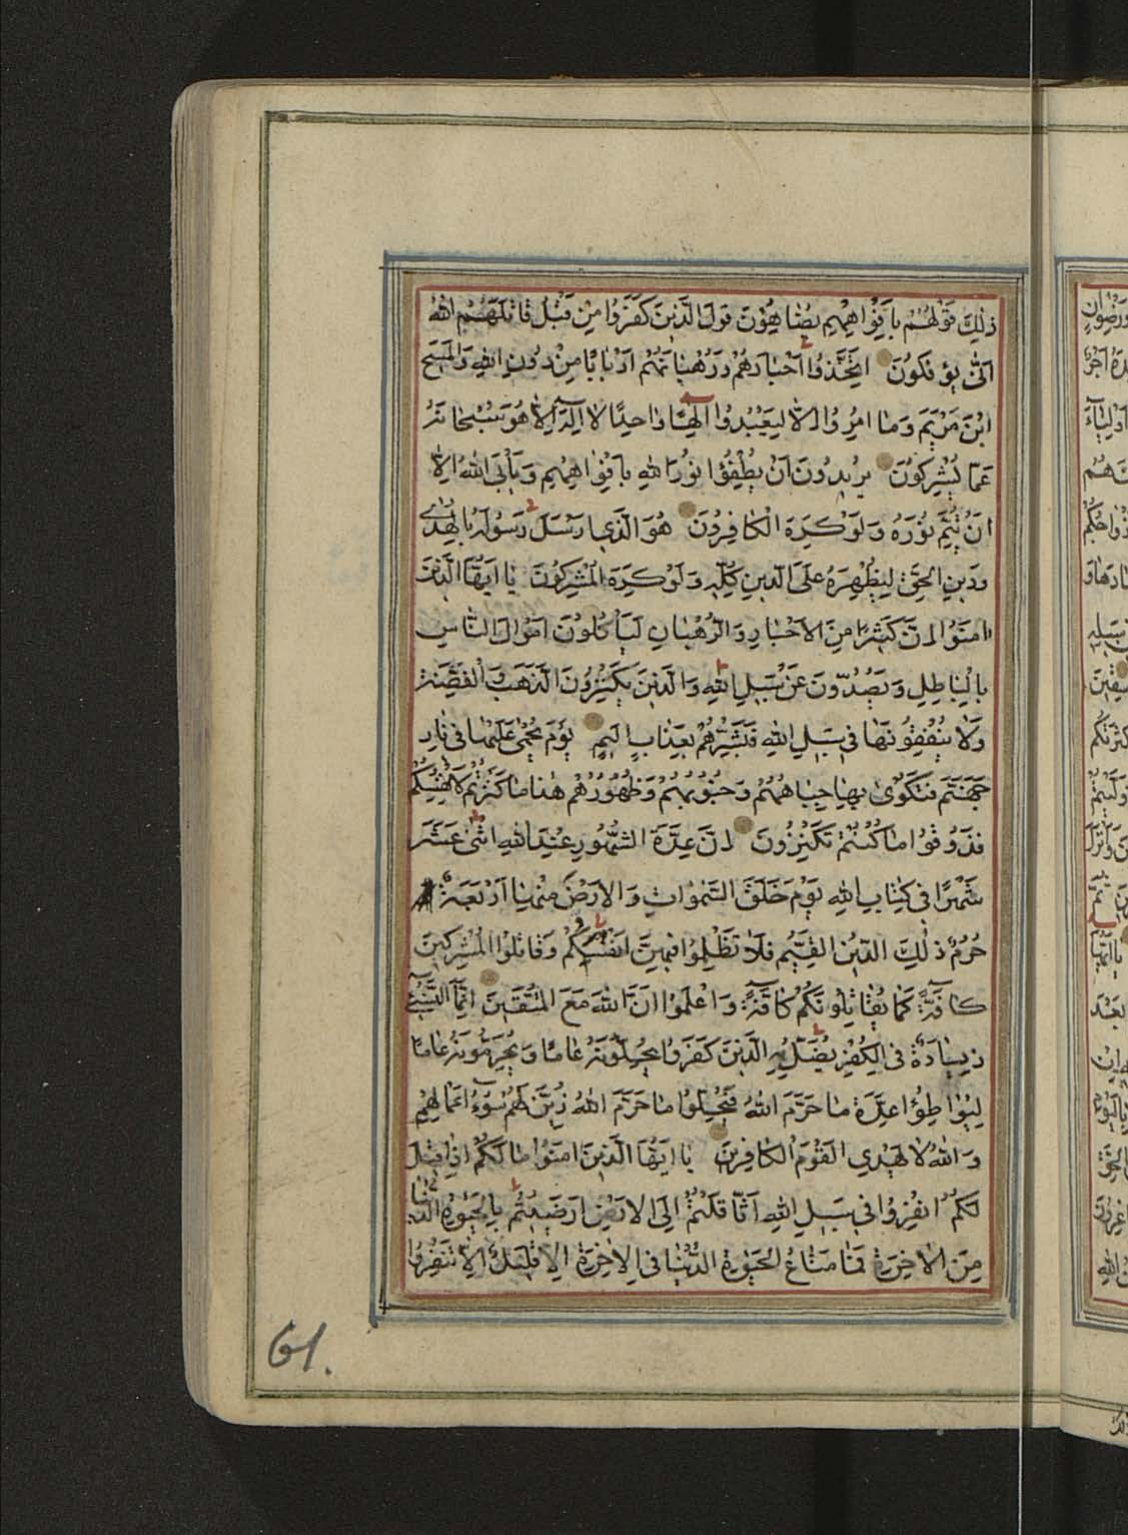 ذٰلِكَ قَوْلُهُمْ بِاَفْوَاهِهِمْ يُضَاهِؤُنَ قَوْلَ الَّذِينَ كَفَرُوا مِنْ قَبْلُ قَاتَلَهُمُ اللّٰهُ
اَنّٰى يُؤْفَكُونَ اِتَّخَذُوا اَحْبَارَهُمْ وَرُهْبَانَهُمْ اَرْبَابًا مِنْ دُونِ اللّٰهِ وَالْمَسِيحَ
ابْنَ مَرْيَمَ وَمَا اُمِرُوا اِلَّا لِيَعْبُدُوا اِلٰهًا وَاحِدًا لَا اِلٰهَ اِلَّا هُوَ سُبْحَانَهُ
عَمَّا يُشْرِكُونَ يُرِيدُونَ اَنْ يُطْفِؤُا نُورَ اللّٰهِ بِاَفْوَاهِهِمْ وَيَأْبَى اللّٰهُ اِلَّا
اَنْ يُتِمَّ نُورَهُ وَلَوْ كَرِهَ الْكَافِرُونَ هُوَ الَّذِي اَرْسَلَ رَسُولَهُ بِالْهُدٰى
وَدِينِ الْحَقِّ لِيُظْهِرَهُ عَلَى الدِّينِ كُلِّهِ وَلَوْ كَرِهَ الْمُشْرِكُونَ يَا اَيُّهَا الَّذِينَ
اٰمَنُوا اِنَّ كَثِيرًا مِنَ الْاَحْبَارِ وَالرُّهْبَانِ لَيَأْكُلُونَ اَمْوَالَ النَّاسِ
بِالْبَاطِلِ وَيَصُدُّونَ عَنْ سَبِيلِ اللّٰهِ وَالَّذِينَ يَكْنِزُونَ الذَّهَبَ وَالْفِضَّةَ
وَلَا يُنْفِقُونَهَا فِي سَبِيلِ اللّٰهِ فَبَشِّرْهُمْ بِعَذَابٍ اَلِيمٍ يَوْمَ يُحْمٰى عَلَيْهَا فِي نَارِ
جَهَنَّمَ فَتُكْوٰى بِهَا جِبَاهُهُمْ وَجُنُوبُهُمْ وَظُهُورُهُمْ هٰذَا مَا كَنَزْتُمْ لِاَنْفُسِكُمْ
فَذُوقُوا مَا كُنْتُمْ تَكْنِزُونَ اِنَّ عِدَّةَ الشُّهُورِ عِنْدَ اللّٰهِ اثْنٰى عَشَرَ
شَهْرًا فِي كِتَابِ اللّٰهِ يَوْمَ خَلَقَ السَّمٰوَاتِ وَالْاَرْضَ مِنْهَا اَرْبَعَةٌ
حُرُمٌ ذٰلِكَ الدِّينُ الْقَيِّمُ فَلَا تَظْلِمُوا فِيهِنَّ اَنْفُسَكُمْ وَقَاتِلُوا الْمُشْرِكِينَ
كَافَّةً كَمَا يُقَاتِلُونَكُمْ كَافَّةً وَاعْلَمُوا اَنَّ اللّٰهَ مَعَ الْمُتَّقِينَ اِنَّمَا النَّسِيءُ
زِيَادَةٌ فِي الْكُفْرِ يُضَلُّ بِهِ الَّذِينَ كَفَرُوا يُحِلُّونَهُ عَامًا وَيُحَرِّمُونَهُ عَامًا
لِيُوَاطِؤُا عِدَّةَ مَا حَرَّمَ اللّٰهُ فَيُحِلُّوا مَا حَرَّمَ اللّٰهُ زُيِّنَ لَهُمْ سُوءُ اَعْمَالِهِمْ
وَاللّٰهُ لَا يَهْدِي الْقَوْمَ الْكَافِرِينَ يَا اَيُّهَا الَّذِينَ اٰمَنُوا مَا لَكُمْ اِذَا قِيلَ
لَكُمُ انْفِرُوا فِي سَبِيلِ اللّٰهِ اثَّاقَلْتُمْ اِلَى الْاَرْضِ اَرَضِيتُمْ بِالْحَيٰوةِ الدُّنْيَا
مِنَ الْاٰخِرَةِ فَمَا مَتَاعُ الْحَيٰوةِ الدُّنْيَا فِي الْاٰخِرَةِ اِلَّا قَلِيلٌ اِلَّا تَنْفِرُوا
61.